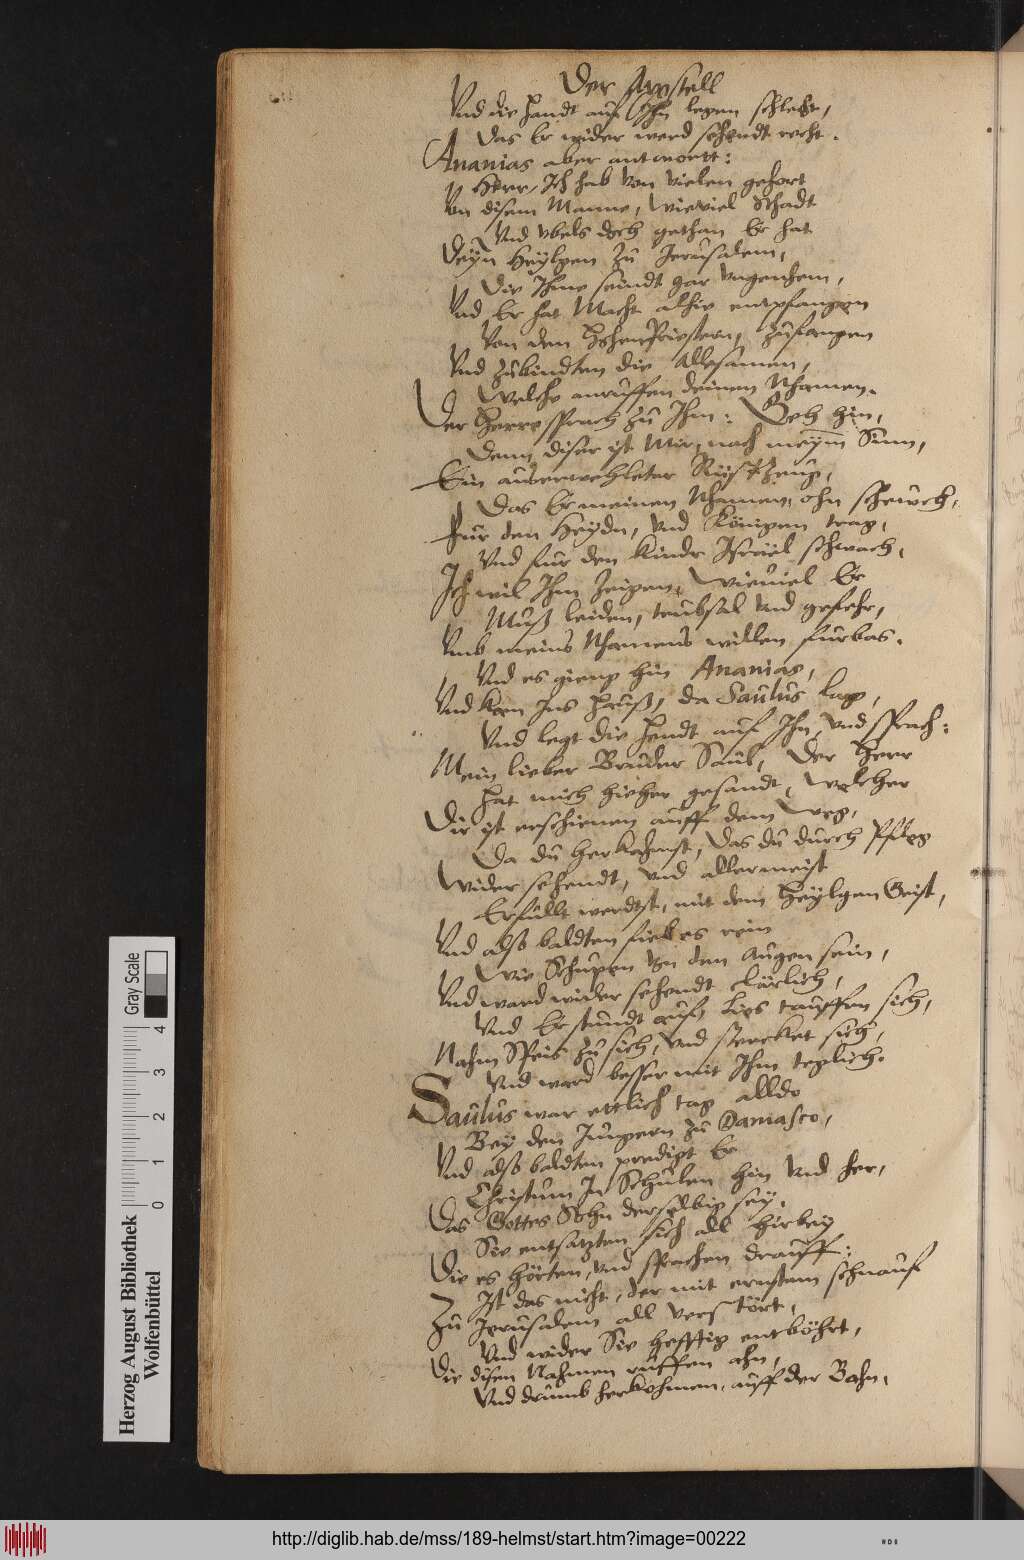 Der Apostell
Vnd die Handt auf Ihn legen schlecht,
Das Er wider werd sehendt recht.
Ananias aber antwortt:
Herr, Ich hab von vielen gehort
Von disem Manne, wieviel Schadt
Vnd vbels doch gethan Er hat
Deyn Heylgen zu Jerusalem,
Die Ihme seindt gar vngenehm,
Vnd Er hat Macht alhie entpfangen
Von den HohenPriestern, zufangen
Vnd zubindten die Allesamen,
Welche anruffen deinen Nhamen.
Der Herre sprach zu Ihm: Geh hin,
Denn diser ist Mir, nach meynn Sinn,
Ein auserwehleter Rüstzeug,
Das Er meinen Nhamen, ohn scheuch,
Fur den Heydn, vnd Königen trag,
Vnd fur den Kindr Israël schwach,
Ich wil Ihm zeigen, wieuiel Er
Muß leiden, trubsal vnd gefehr,
Vmb meins Nhamens willen furbas.
Vnd es gieng hin Ananias,
Vnd kam Ins Hauß, da Saulus lag,
Vnd legt die Hendt auf Ihn, vnd sprach:
Mein lieber Bruder Saul, Der Herr
Hat mich hieher gesandt, welcher
Dir ist erschienen auff dem Weg,
Da du herkahmst, Das du durch Pfleg
Wider sehendt, vnd allermeist
Erfullt werdtst, mit dem Heylgen Geist,
Vnd alß baldten fiel es rein
Wie Schupen von den Augen sein,
Vnd ward wider sehendt klärlich,
Vnd Er stundt auf, lies tauffen sich,
Nahm Speis zu sich, vnd sterckett sich,
Vnd ward besser mit Ihm teglich.
Saulus war ettlich tag alldo
Bey den Jungern zu Damasco,
Vnd alß baldten predigt Er
Christum In Schulen hin vnd her,
Das Gottes Sohn derselbig sey.
Sie entsatzten sich all hirbey
Die es hörten, vnd sprachen drauff:
Ist das nicht, der mit ernstem schnauf
Zu Jerusalem all verstört,
Vnd wider Sie hefftig entböhrt,
Die disen Nahmen ruffen ahn,
Vnd drumb herkohmen, auff der Bahn,
Herzog August Bibliothek
Wolfenbüttel
0 1 2 3 4
Gray Scale
http://diglib.hab.de/mss/189-helmst/start.htm?image=00222